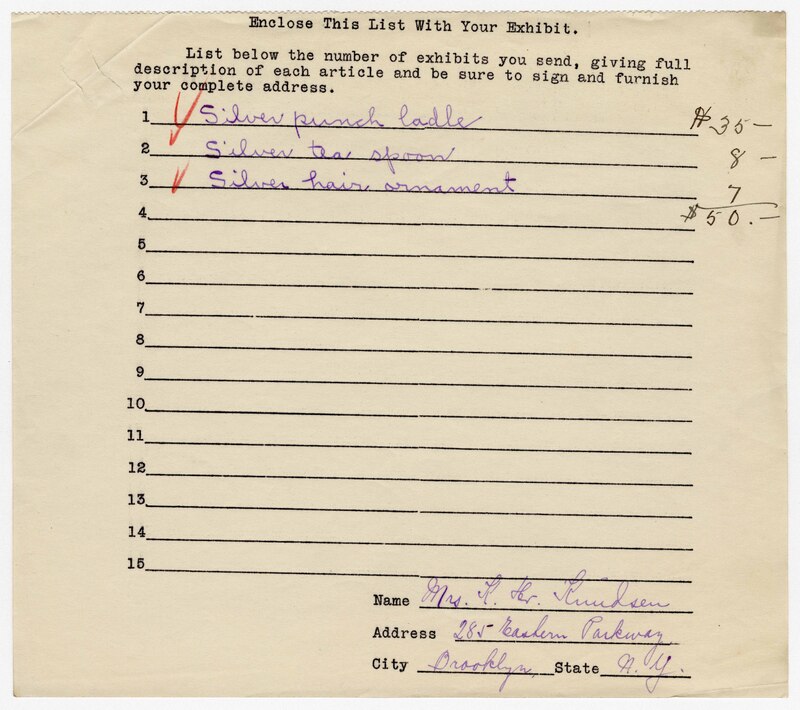 Enclose This List With Your Exhibit.
List below the number of exhibits you send, giving full
description of each article and be sure to sign and furnish
your complete address.
1 Silver punch ladle $35—
2 Silver tea spoon 8—
3 Silver hair ornament 7
4 $50.—
5
6
7
8
9
10
11
12
13
14
15
Name Mrs. K. Kr. Knudsen
Address 285 Eastern Parkway
City Brooklyn, State N.Y.